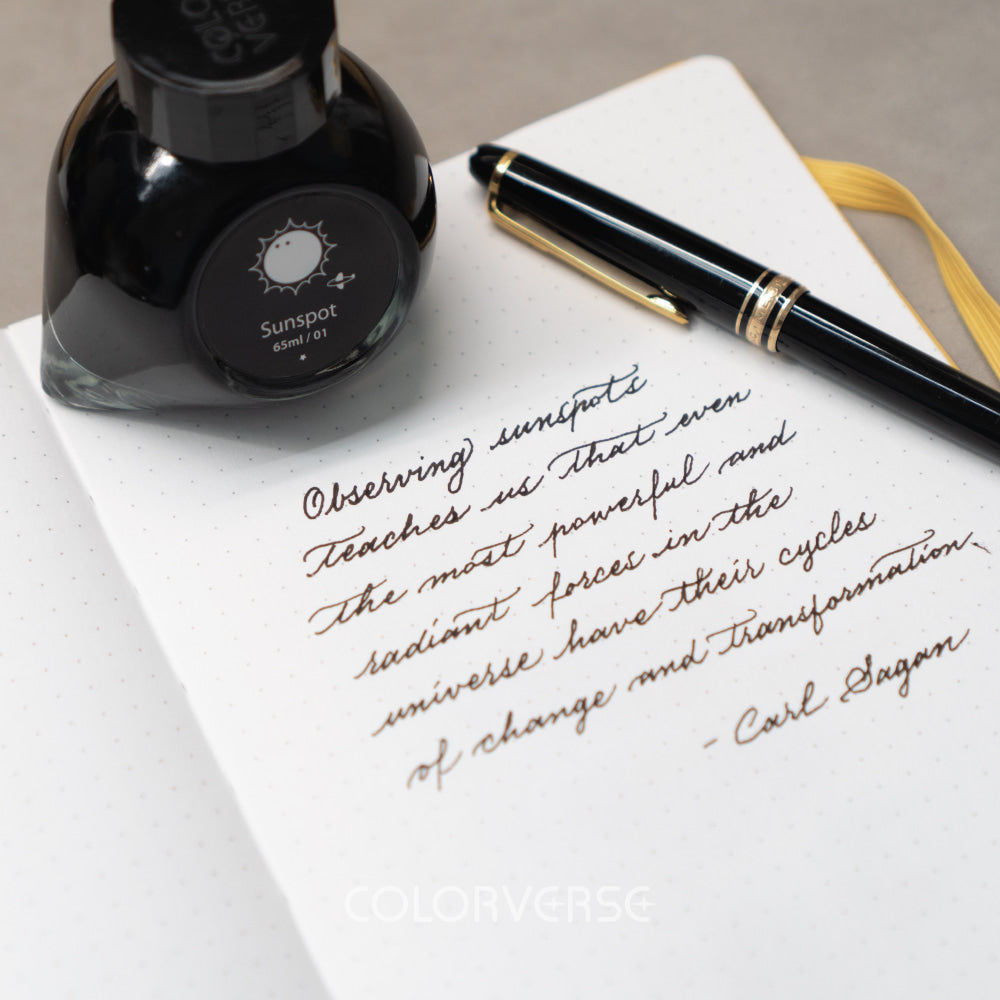 COLO
VER
Sunspot
65ml / 01
Observing sunspots
teaches us that even
the most powerful and
radiant forces in the
universe have their cycles
of change and transformation.
- Carl Sagan
COLORVERSE